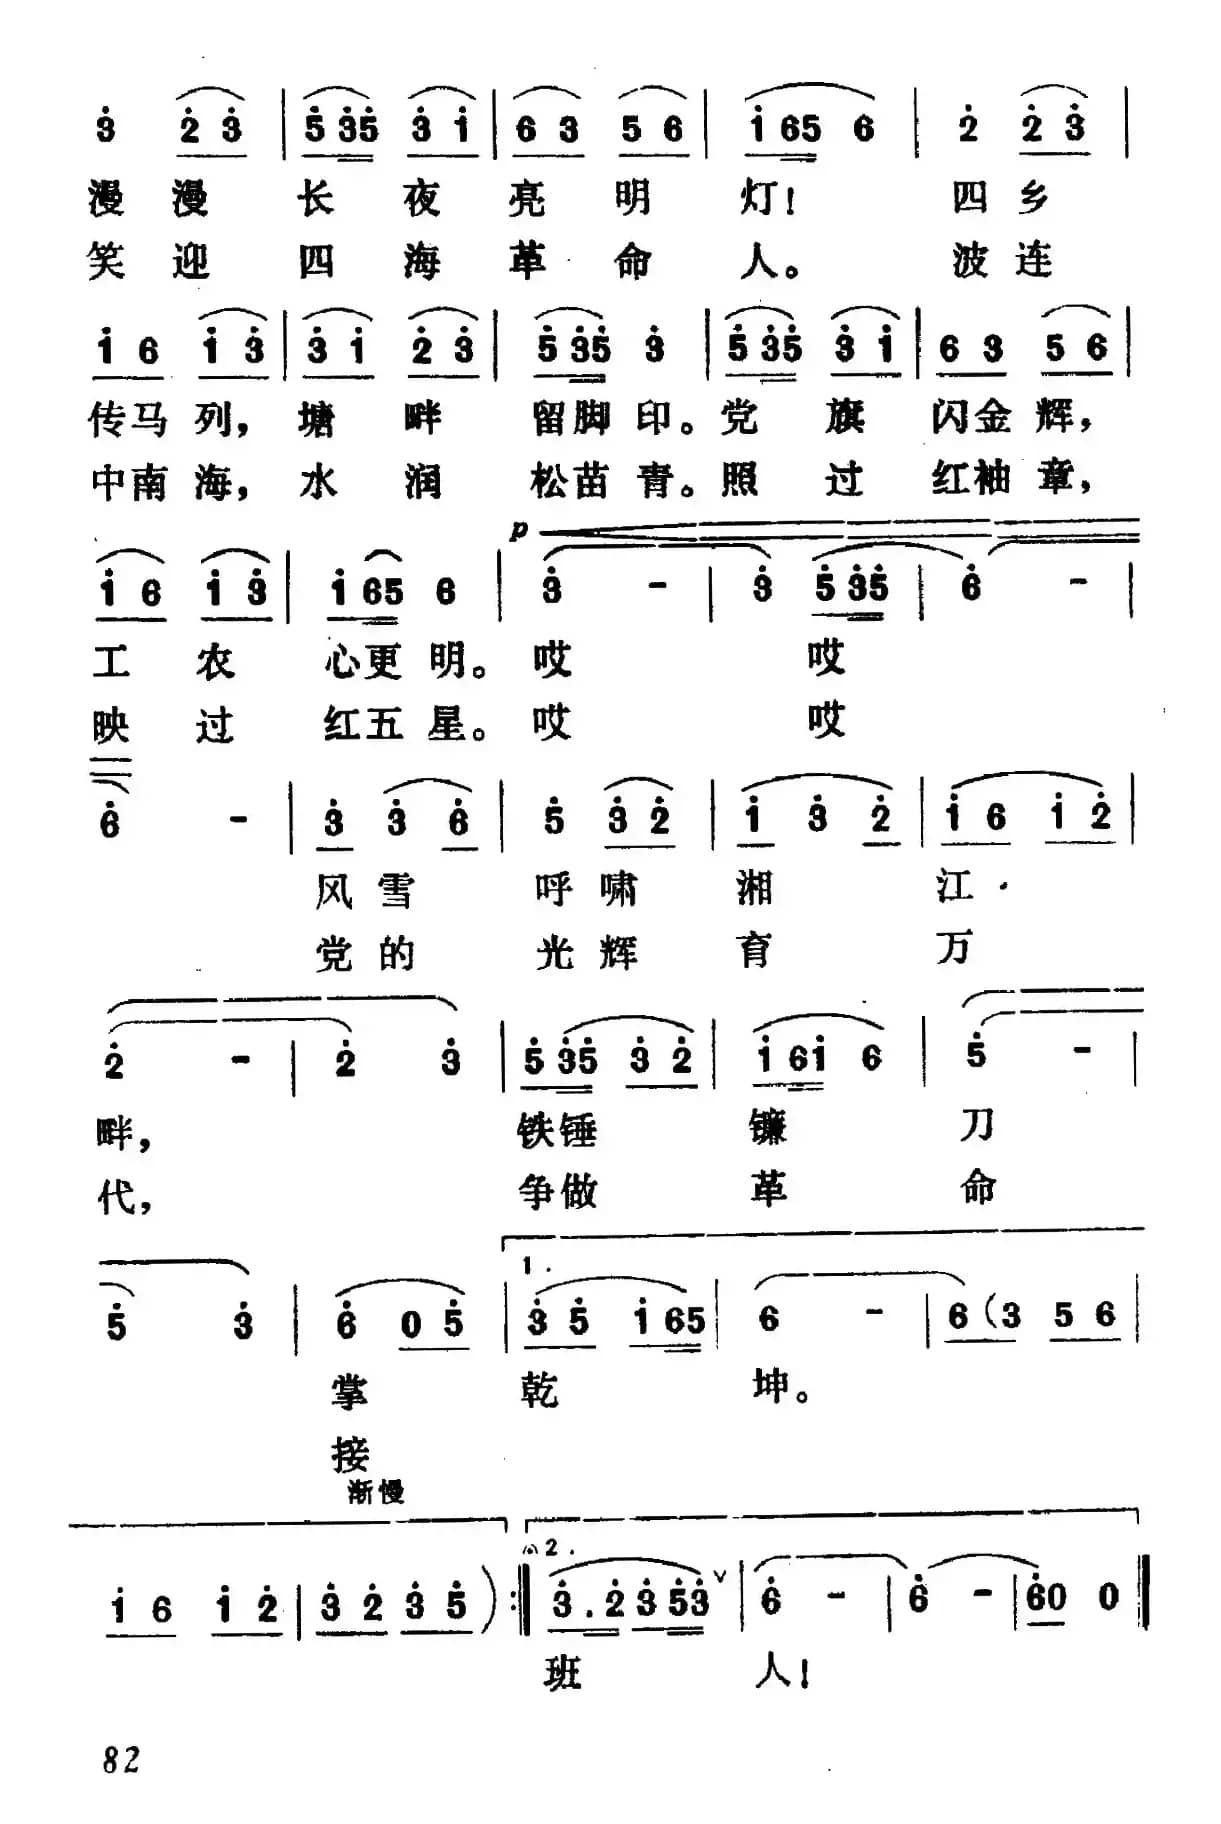 3 2 3 | 5 35 3 1 | 6 3 5 6 | 1 65 6 | 2 2 3 |
漫漫 长 夜 亮 明 灯! 四乡
笑迎 四 海 革 命 人。 波连
1 6 1 3 | 3 1 2 3 | 5 35 3 | 5 35 3 1 | 6 3 5 6 |
传马列, 塘 畔 留脚印。党 旗 闪金辉,
中南海, 水 润 松苗青。照 过 红袖章,
p
1 6 1 3 | 1 65 6 | 3 - | 3 5 35 | 6 - |
工 农 心更明。哎 哎
映 过 红五星。哎 哎
6 - | 3 3 6 | 5 3 2 | 1 3 2 | 1 6 1 2 |
风雪 呼啸 湘 江
党的 光辉 育 万
2 - | 2 3 | 5 35 3 2 | 1 61 6 | 5 - |
畔, 铁锤 镰 刀
代, 争做 革 命
1.
5 3 | 6 0 5 | 3 5 1 65 | 6 - | 6 (3 5 6 |
掌 乾 坤。
接
渐慢
2.
1 6 1 2 | 3 2 3 5 ) :| 3. 2 3 53 ∨ | 6 - | 6 - | 60 0 ||
班 人!
82